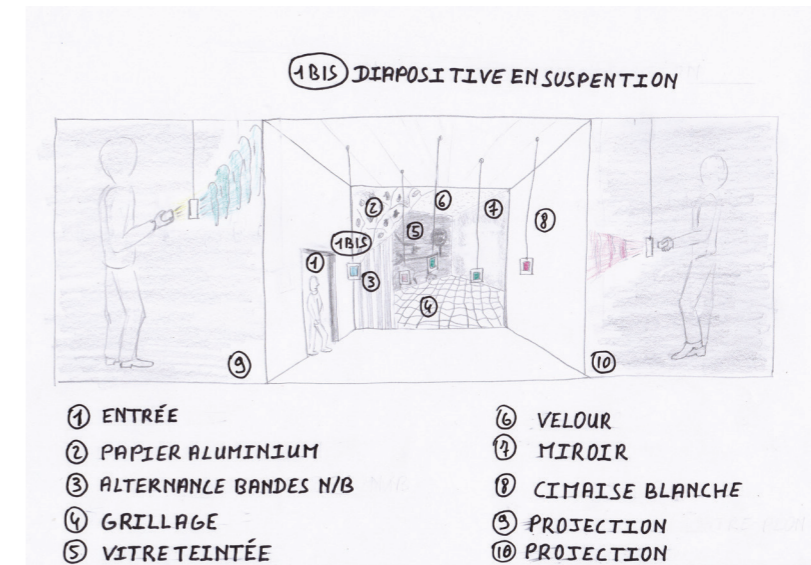 1BIS DIAPOSITIVE EN SUSPENTION
2
6
7
8
1BIS
5
1
3
4
9
10
1 ENTRÉE
2 PAPIER ALUMINIUM
3 ALTERNANCE BANDES N/B
4 GRILLAGE
5 VITRE TEINTÉE
6 VELOUR
7 MIROIR
8 CIMAISE BLANCHE
9 PROJECTION
10 PROJECTION